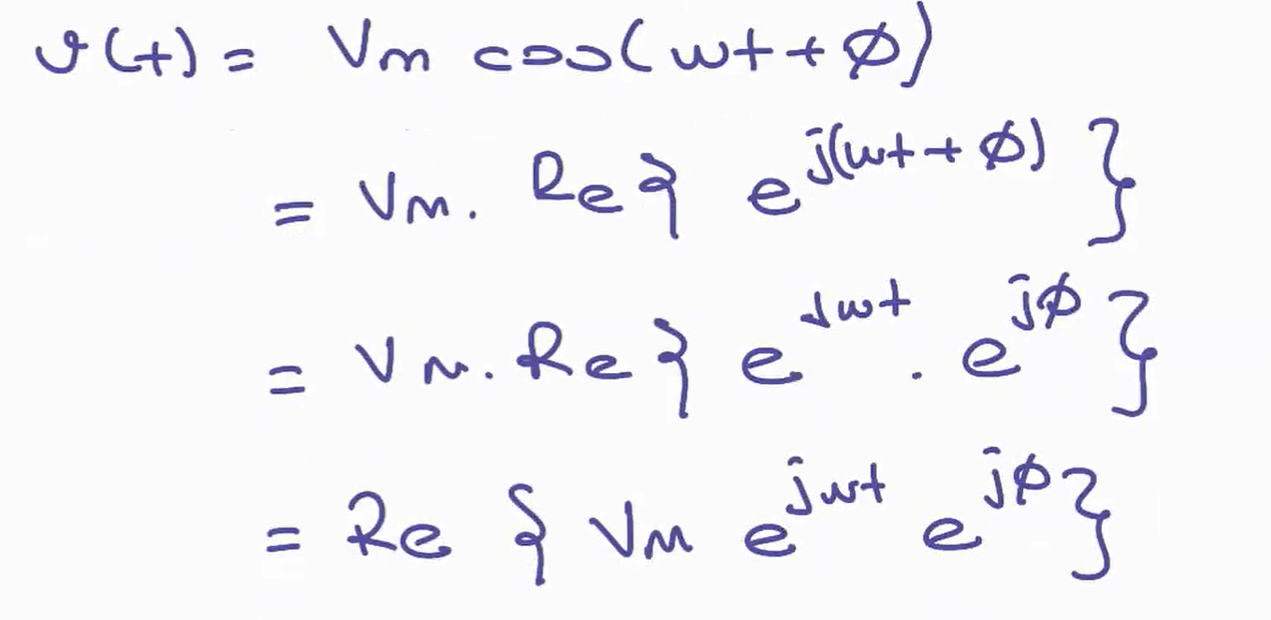 v(t) = Vm cos(wt + ϕ)
= Vm. Re{ e^j(wt + ϕ) }
= Vm. Re{ e^jwt . e^jϕ }
= Re { Vm e^jwt e^jϕ }